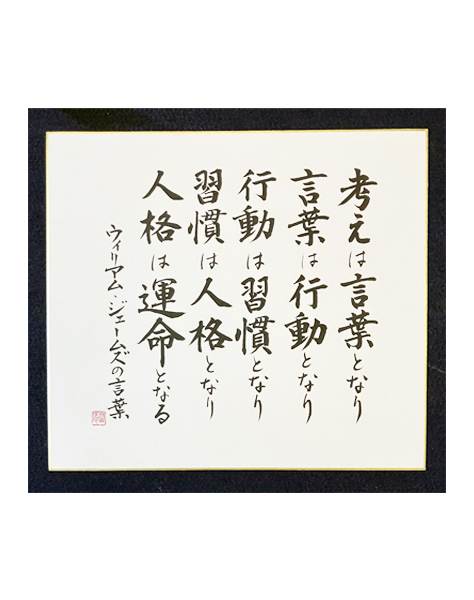 考えは言葉となり
言葉は行動となり
行動は習慣となり
習慣は人格となり
人格は運命となる
ウィリアム・ジェームズの言葉